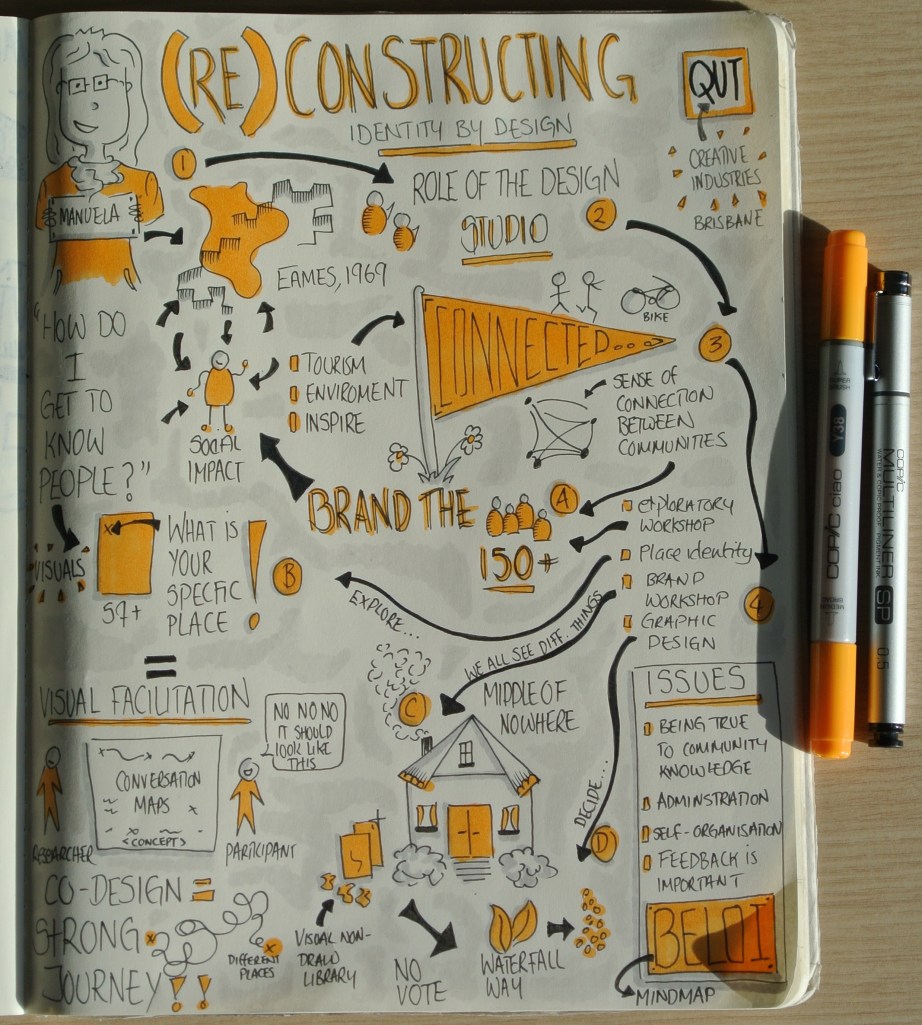 (RE)CONSTRUCTING
IDENTITY BY DESIGN
QUT
CREATIVE
INDUSTRIES
BRISBANE
MANUELA
1
ROLE OF THE DESIGN
STUDIO
2
EAMES, 1969
"HOW DO
I
GET TO
KNOW
PEOPLE?"
SOCIAL
IMPACT
TOURISM
ENVIROMENT
INSPIRE
CONNECTED...
BIKE
3
SENSE OF
CONNECTION
BETWEEN
COMMUNITIES
BRAND THE
150+
A
EXPLORATORY
WORKSHOP
PLACE IDENTITY
BRAND
WORKSHOP
GRAPHIC
DESIGN
4
VISUALS
X
57+
WHAT IS
YOUR
SPECFIC
PLACE!
B
EXPLORE...
WE ALL SEE DIFF. THINGS
=
VISUAL FACILITATION
NO NO NO
IT SHOULD
LOOK LIKE
THIS
CONVERSATION
MAPS
<CONCEPT>
RESEARCHER
PARTICIPANT
C
MIDDLE OF
NOWHERE
DECIDE...
D
CO-DESIGN =
STRONG
JOURNEY!!
DIFFERENT
PLACES
VISUAL NON-
DRAW
LIBRARY
NO
VOTE
WATERFALL
WAY
ISSUES
BEING TRUE
TO COMMUNITY
KNOWLEDGE
ADMINSTRATION
SELF-ORGANISATION
FEEDBACK IS
IMPORTANT
BELOI
MINDMAP
Y38
COPIC ciao
COPIC
MULTILINER SP
0.5